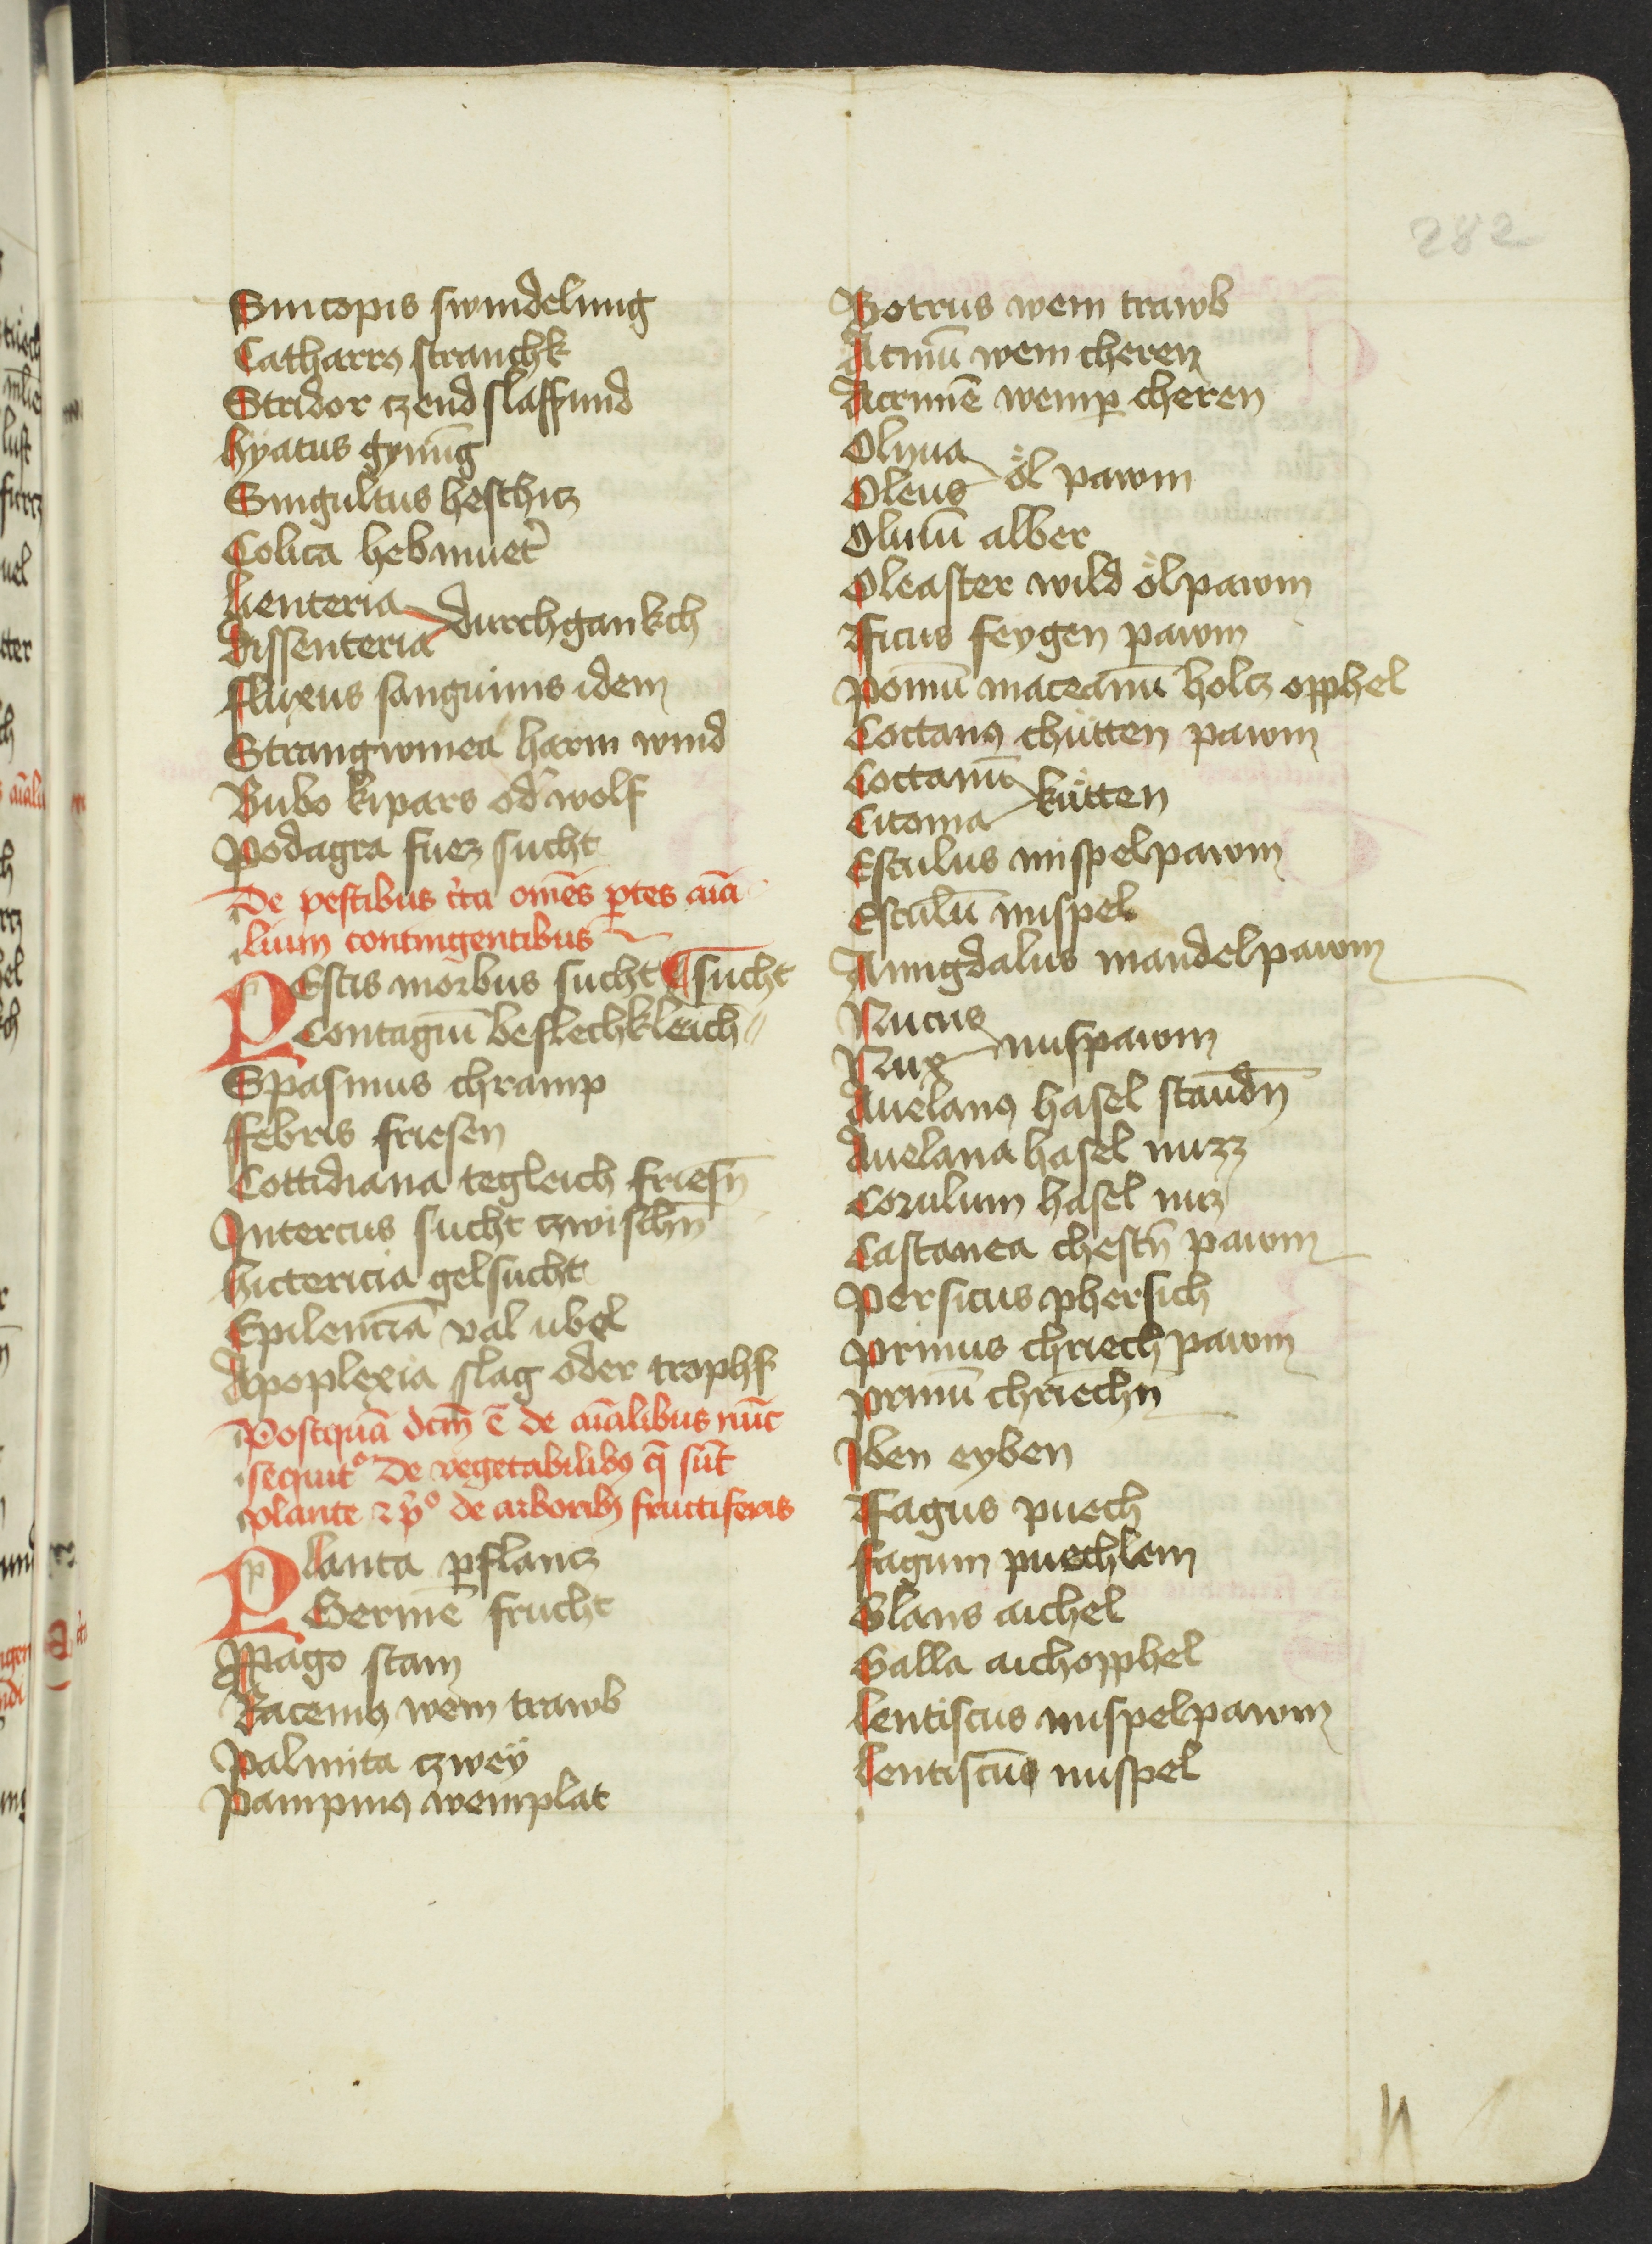 282
Sincopis swindelung
Catharrꝯ strauchk
Stridor czend slaffund
hyatus gynūg
Singultus heschicz
Colica hebmuet̉
Lienteria
dissenteria durchgankch
ffluxus sanguinis idem
Strangwinea harm wind
Bubo kipars od̉ wolf
Podagra fuez sucht
De pestibus c̉ca om̄es ꝑtes aīa
lium contingentibus
PEstis morbus sucht ¶ sucht
Contagiū beflechkleich
Spasmus chramp
ffebris friesen
Cottidiana tegleich friesn̄
Intercus sucht czwischn̄
hictericia gelsucht
Epilencia val ubel
Apoplexia slag oder trophf
Postquā dc̄m ē de aīalibus nūc
sequit᷑ De vegetabilibꝯ q̄ sūt
plante ⁊ p̉º de arboribꝫ fructiferis
Planta pflancz
Germē frucht
Propago stam
Racemꝯ wein trawb
Palmita czwey
Pampinꝯ weinplat
Botrus wein trawb
Acinū wein cheren
Acrimē weinper cheren
Olyua
Oleus öl pawm
Oliuū alber
Oleaster wild ölpawm
fficus feygen pawm
Pomū maceanū holcz opphel
Coctanꝯ chütten pawm
Coctanū
Citonia kütten
Esculus mispelpawm
Esculū mispel
Amigdalus mandelpawm
Nucus
Nux nuspawm
Auelanꝯ hasel staudn̄
Auelana hasel nuzz
Corulum hasel nuz
Castanea chestn̄ pawm
Persicus phersich
Prinus chriech pawm
prinū chriechn̄
Iben eyben
ffagus puech
fagum puechlein
Glans aichel
Galla aichopphel
Lentiscus mispelpawm
Lentiscūs mispel